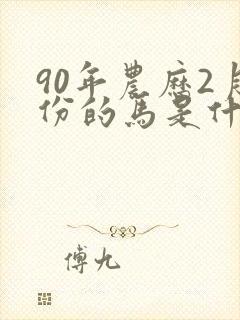 90年農歷2月
份的馬是什
傅九